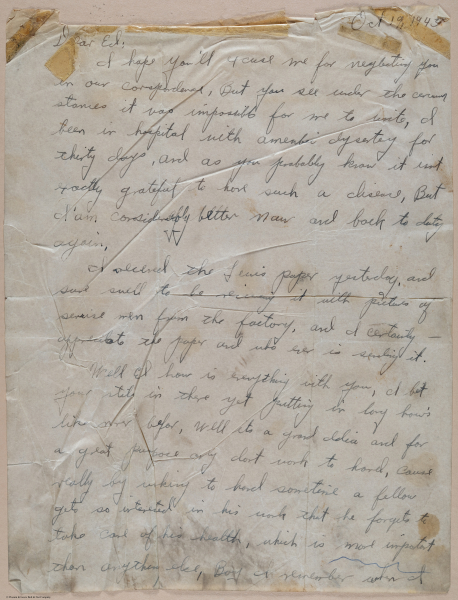 Oct 19, 1945
Dear Ed:
I hope you'll xcuse me for neglecting you
in our correspondence, But you see under the circum
stances it was impossible for me to write, I
been in hospital with amoebic dysentery for
thirty days, and as you probably know it isnt
xactly grateful to have such a disease, But
I am considerably better now and back to duty
again,
I received the news paper yesterday, and
sure swell to be receiving it with pictures of
service men from the factory, and I certainly
appreciate the paper and who ever is sending it.
Well Ed how is everything with you, I bet
your still in there yet putting in long hours
like never before, Well its a good idea and for
a great purpose only dont work to hard, cause
really by working to hard sometime a fellow
gets so interested in his work that he forgets to
take care of his health, which is most important
than anything else, Boy I remember when I